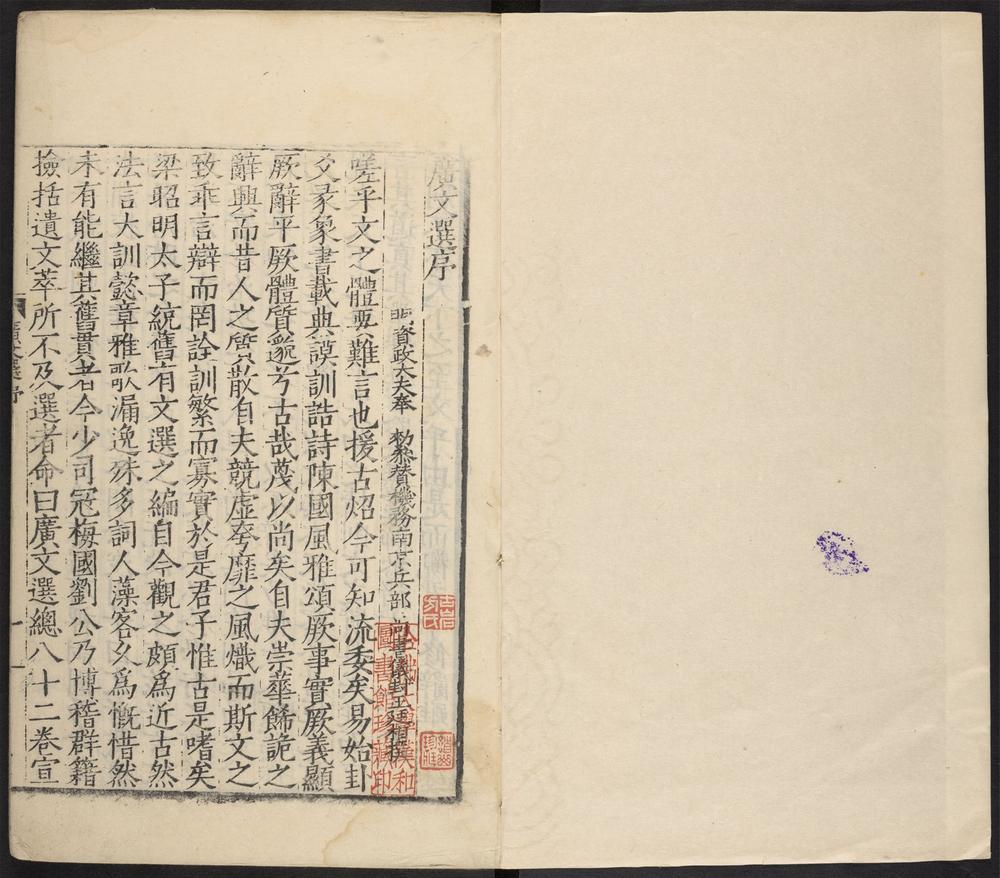 廣文選序
賜資政大夫奉 勑叅贊機務南京兵部 尚書儀封王廷相撰
嗟乎文之體要難言也援古炤今可知流委矣易始卦
爻彖象書載典謨訓誥詩陳國風雅頌厥事實厥義顯
厥辭平厥體質邈兮古哉蔑以尚矣自夫崇華飾詭之
辭興而昔人之質散自夫競虛夸靡之風熾而斯文之
致乖言辯而罔詮訓繁而寡實於是君子惟古是嗜矣
梁昭明太子統舊有文選之編自今觀之頗爲近古然
法言大訓懿章雅歌漏逸殊多詞人藻客久爲慨惜然
未有能繼其舊貫者今少司寇梅國劉公乃博稽群籍
撿括遺文萃所不及選者命曰廣文選總八十二卷宣
廣文選序
一